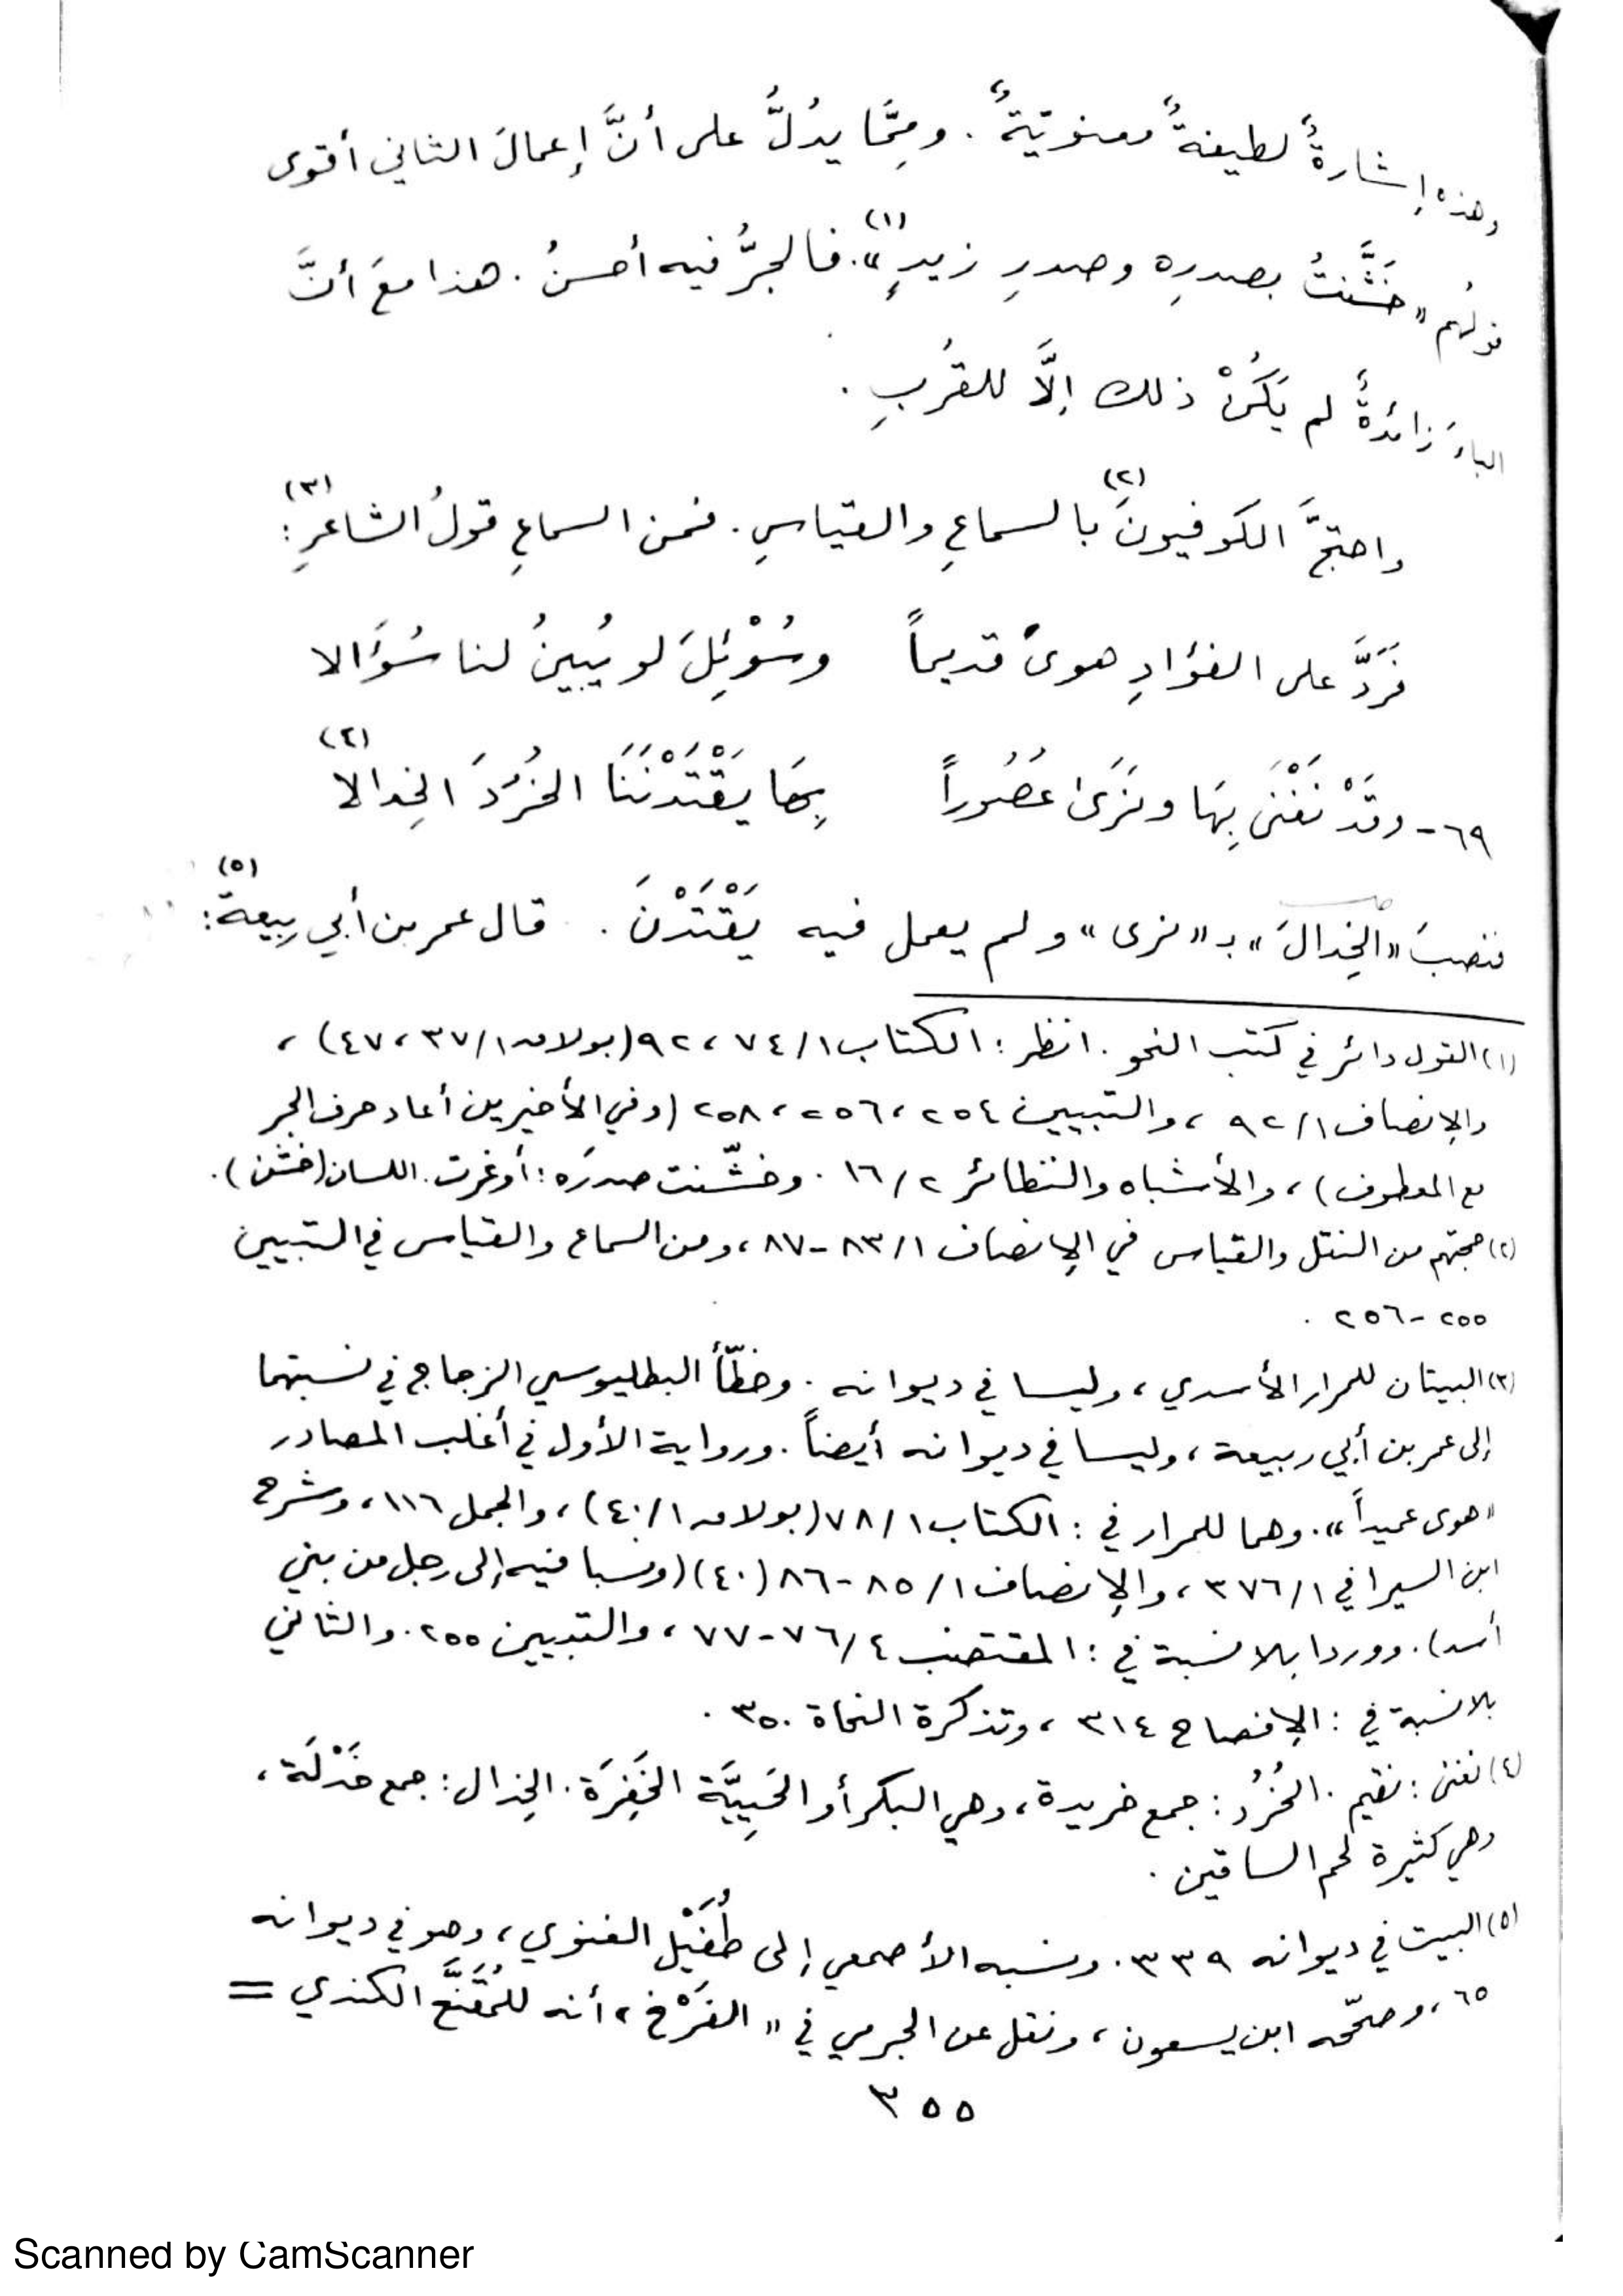 وهذه إشارةٌ لطيفةٌ معنويّةٌ. وممَّا يدُلُّ على أنَّ إعمالَ الثاني أقوى
قولُهم «خَشَّنتُ بصدرِه وصدرِ زيدٍ»(١). فالجرُّ فيه أحسنُ. هذا معَ أنَّ
الباءَ زائدةٌ لم يَكُنْ ذلك إلَّا للقُربِ.
واحتجَّ الكوفيونَ(٢) بالسماعِ والقياسِ. فمن السماعِ قولُ الشاعرِ(٣):
فَرَدَّ على الفؤادِ هوىً قديماً وسُوْئِلَ لو يُبينُ لنا سُؤَالا
٦٩- وقَدْ نَغْنَى بِهَا ونَرَى عُصُوراً بِهَا يَقْتَدْنَنَا الخُرُدَ الخِدالا(٤)
فنصبَ «الخِدالَ» بـ«نرى» ولم يعمل فيه يَقْتَدْنَ. قال عمر بن أبي ربيعة(٥):
(١) القول دائر في كتب النحو. انظر: الكتاب ٧٤/١، ٩٢ (بولاق ٣٧/١، ٤٧)،
والإنصاف ٩٢/١، والتبيين ٢٥٤، ٢٥٦، ٢٥٨ (وفي الأخيرين أعاد حرف الجر
مع المعطوف)، والأشباه والنظائر ١٦/٢. وخشّنت صدرَه: أوغرت. اللسان (خشن).
(٢) حجتهم من النقل والقياس في الإنصاف ٨٣/١-٨٧، ومن السماع والقياس في التبيين
٢٥٥-٢٥٦.
(٣) البيتان للمرار الأسدي، وليسا في ديوانه. وخطّأ البطليوسي الزجاج في نسبتهما
إلى عمر بن أبي ربيعة، وليسا في ديوانه أيضاً. ورواية الأول في أغلب المصادر
«هوى عميداً». وهما للمرار في: الكتاب ٧٨/١ (بولاق ٤٠/١)، والجمل ١١٦، وشرح
ابن السيرافي ٣٧٦/١، والإنصاف ٨٥/١-٨٦ (٤٠) (ونسبا فيه إلى رجل من بني
أسد). ووردا بلا نسبة في: المقتضب ٧٦/٤-٧٧، والتبيين ٢٥٥. والثاني
بلا نسبة في: الإفصاح ٣١٤، وتذكرة النحاة ٣٥٠.
(٤) نغنى: نقيم. الخُرُد: جمع خريدة، وهي البكر أو الحَيِيَّة الخَفِرَة. الخِدال: جمع خَدْلَة،
وهي كثيرة لحم الساقين.
(٥) البيت في ديوانه ٣٣٩. ونسبه الأصمعي إلى طُفَيْل الغنوي، وهو في ديوانه
٦٥، وصحّحه ابن يسعون، ونقل عن الجرمي في «الفَرْخ» أنه للمُقَنَّع الكندي =
٣٥٥
Scanned by CamScanner